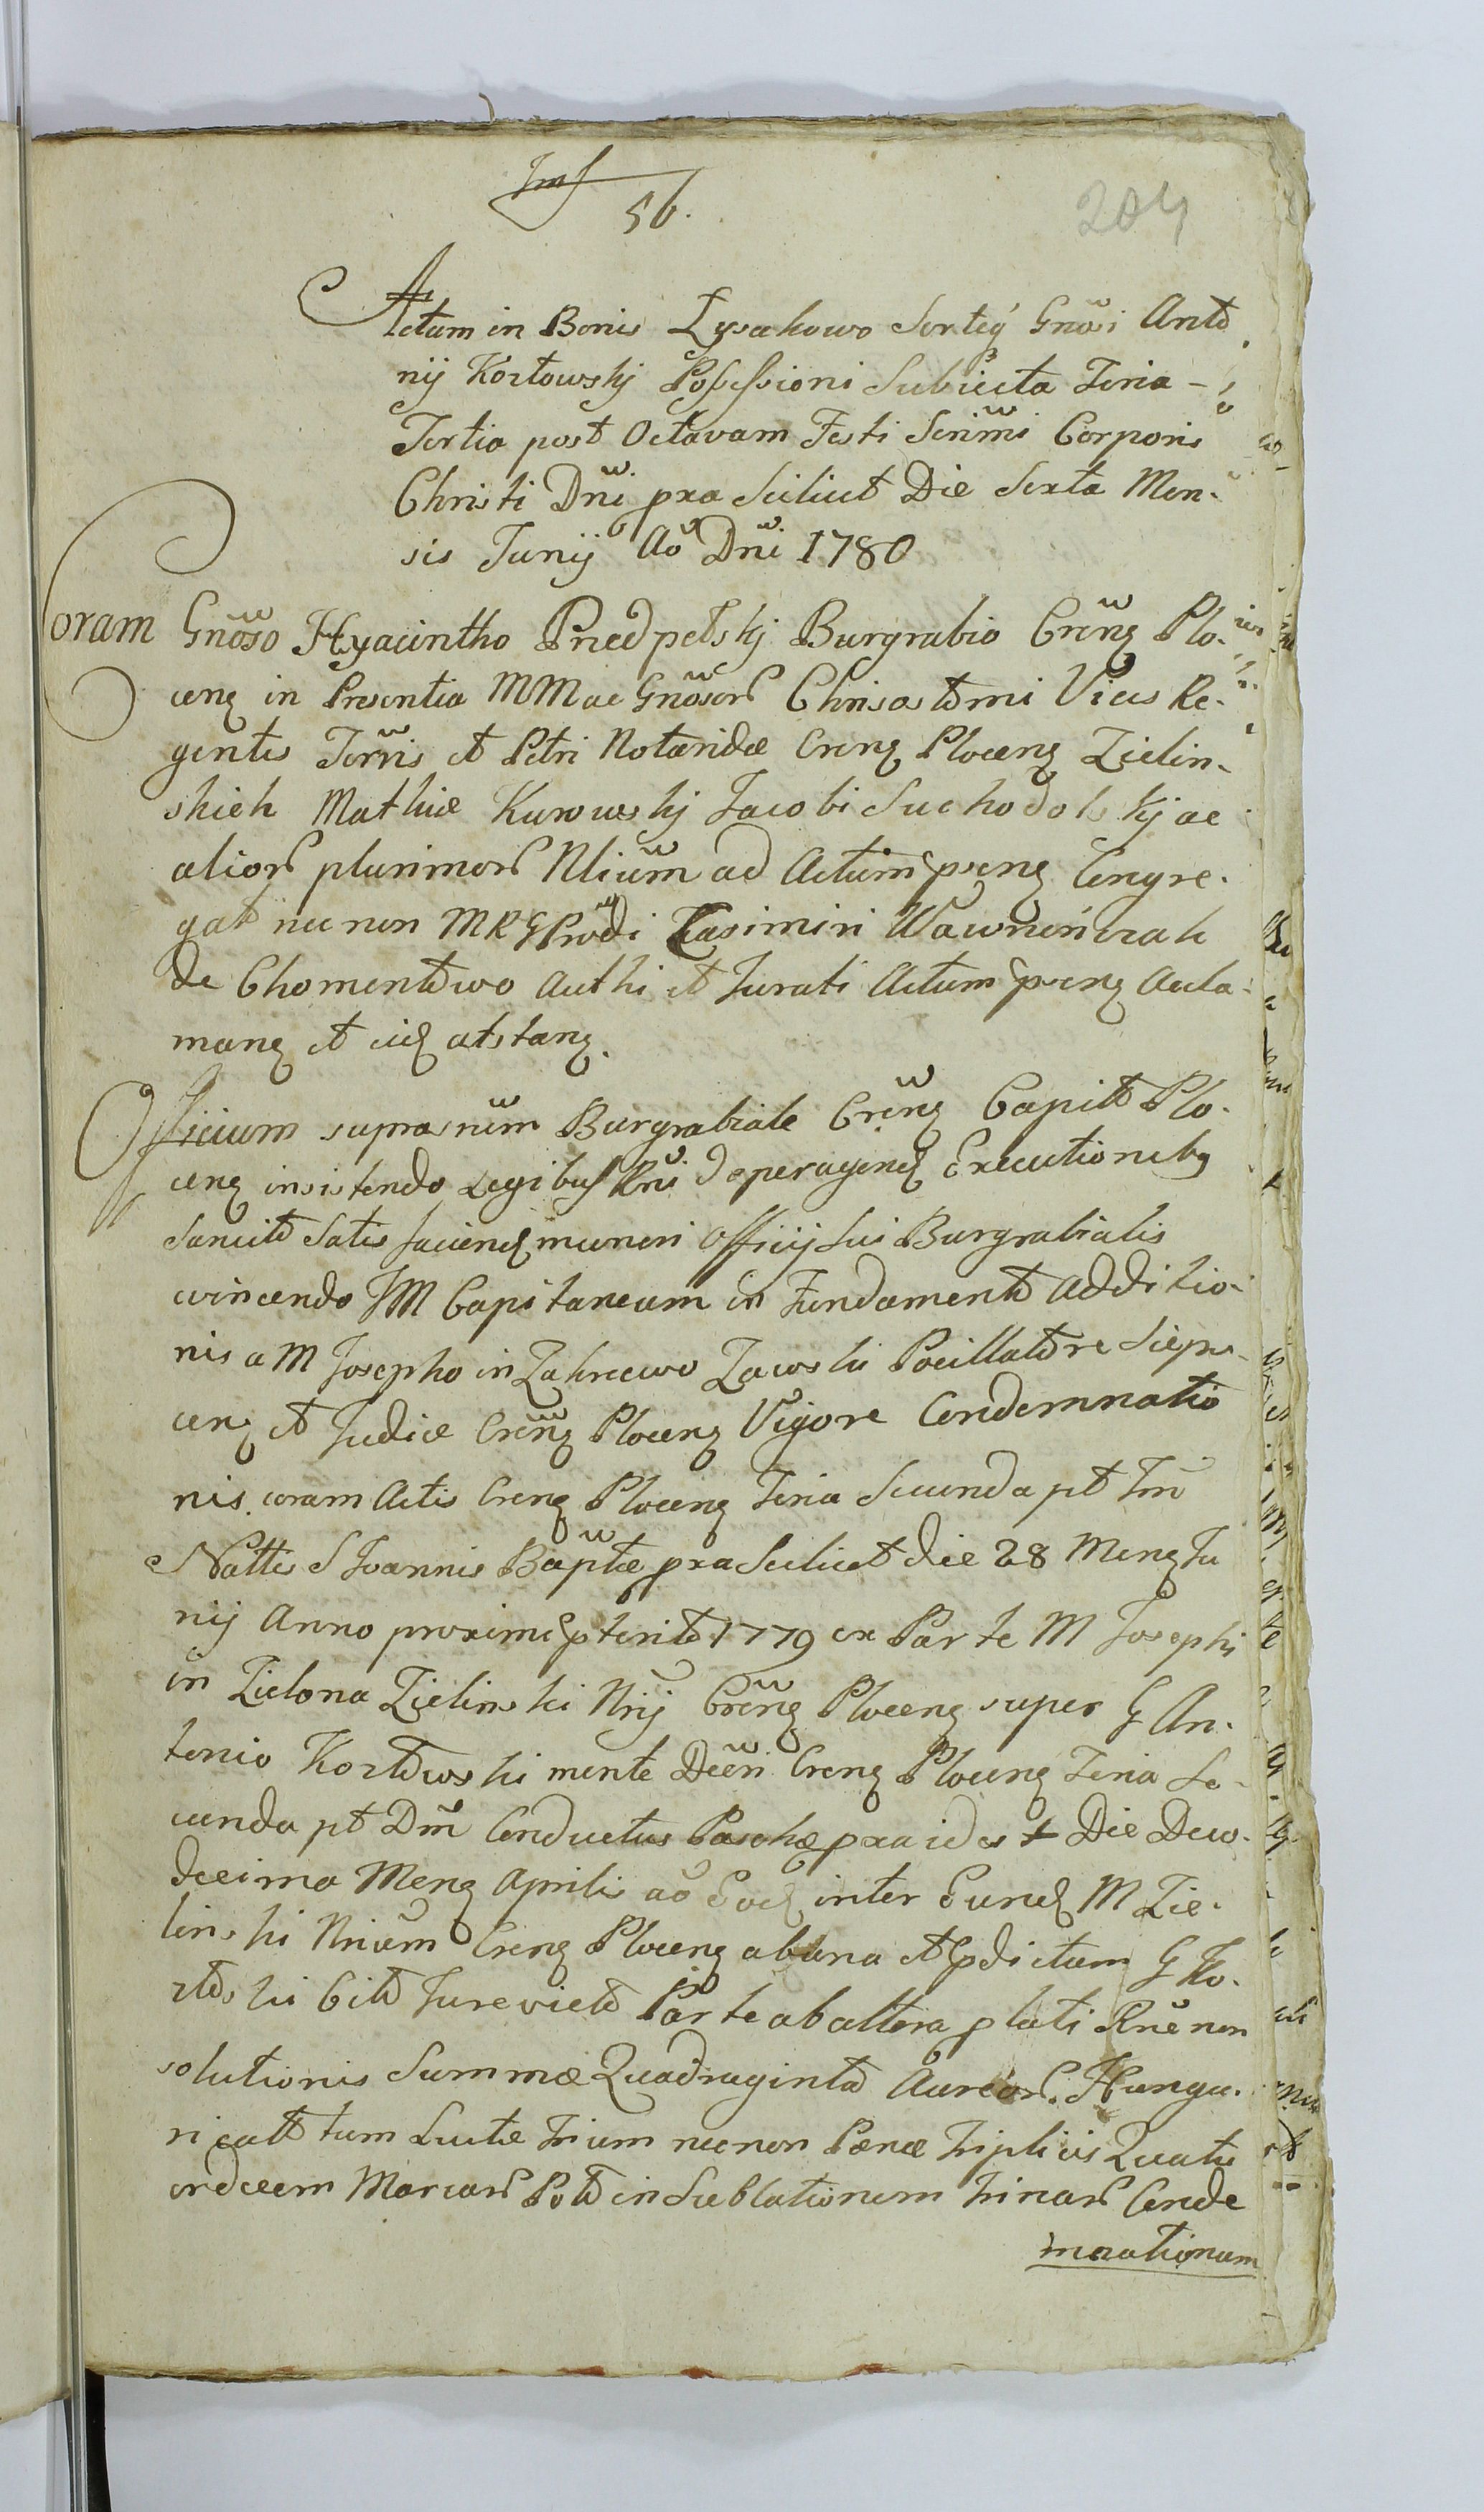 56.
204
Actum in Bonis Łysakowo Sorteÿ Gnosi Anto
nij Kozłowskj Possessioni Subiecta Feria -
Tertia post Octavam Festi Scrimi Corporis
Christi Dni pra Scilicet Die Sexta Men-
sis Junij Aō Dni 1780
Coram Gnoso Hyacintho Przedpełskj Burgrabio Crenz Plo-
cenz in Presentia MM ac Gnosor Chrisostomi Vices Re-
gentis Terris et Petri Notaridæ Crenz Plocenz Zielin-
skich Mathiæ Kurowskj Jacobi Suchodolskj ac
alior plurimor Nlium ad Actum prenz Congre-
gat nec non MRG Prodi Casimiri Wawrzeńczak
de Chomentowo Authi et Jurati Actum prenz Acla-
manz et eid atstanz.
Officium suprasnum Burgrabiale Crenz Capitt Plo-
cenz insistendo Legibus Rni d peragend Executionibg
Sancitt Satis faciend muneri Officij Sui Burgrabialis
vincendo JM Capitaneum in Fundamento Additio-
nis a M Josepho in Zakrzewo Zawski Pocillatore Sierp-
cenz et Judice Crenz Plocenz Vigore Condemnatio
nis coram Actis Crenz Plocenz Feria Secunda pt Fm
Nattis S Joannis Baptæ pra Scilicet die 28 Menz Ju
nij Anno proxime pterito 1779 ex Parte M Josephi
in Zielona Zielinski Nrij Crenz Plocenz super G An-
tonio Kozłowski mente Decri Crenz Plocenz Feria Se-
cunda pt Dm Conductus Paschæ pra id est Die Duo-
decima Menz Aprilis aō Eod inter Eund M Zie-
linski Nrium Crenz Plocenz ab una et pdictum G Ko-
złoski Citt Jurevictt Parte ab altera plati Rne non
solutionis Summæ Quadraginta Aureor. Hunga-
ricatt tum Luctæ Trium necnon Pænæ Triplicis Quatu
ordecem Marcar Pott in Sublationem Trinar Conde
mnationum